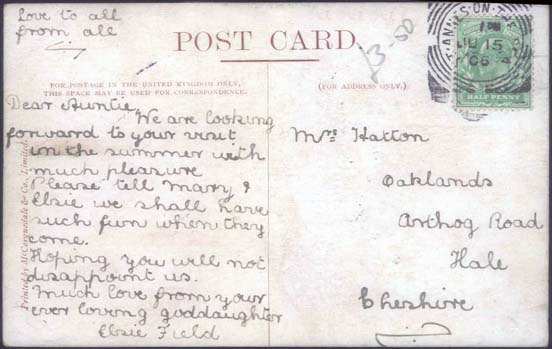 Love to all
from all
POST CARD.
B-50
FOR POSTAGE IN THE UNITED KINGDOM ONLY,
THIS SPACE MAY BE USED FOR CORRESPONDENCE.
(FOR ADDRESS ONLY.)
Dear Auntie
We are looking
forward to your visit
in the summer with
much pleasure
Please tell Mary &
Elsie we shall have
such fun when they
come.
Hoping you will not
disappoint us.
Much love from your
ever loving goddaughter
Elsie Field
Mrs. Hatton
Oaklands
Arthog Road
Hale
Cheshire
Printed by McCorquodale & Co., Limited.
ANNES-ON-THE
15
06
HALF PENNY